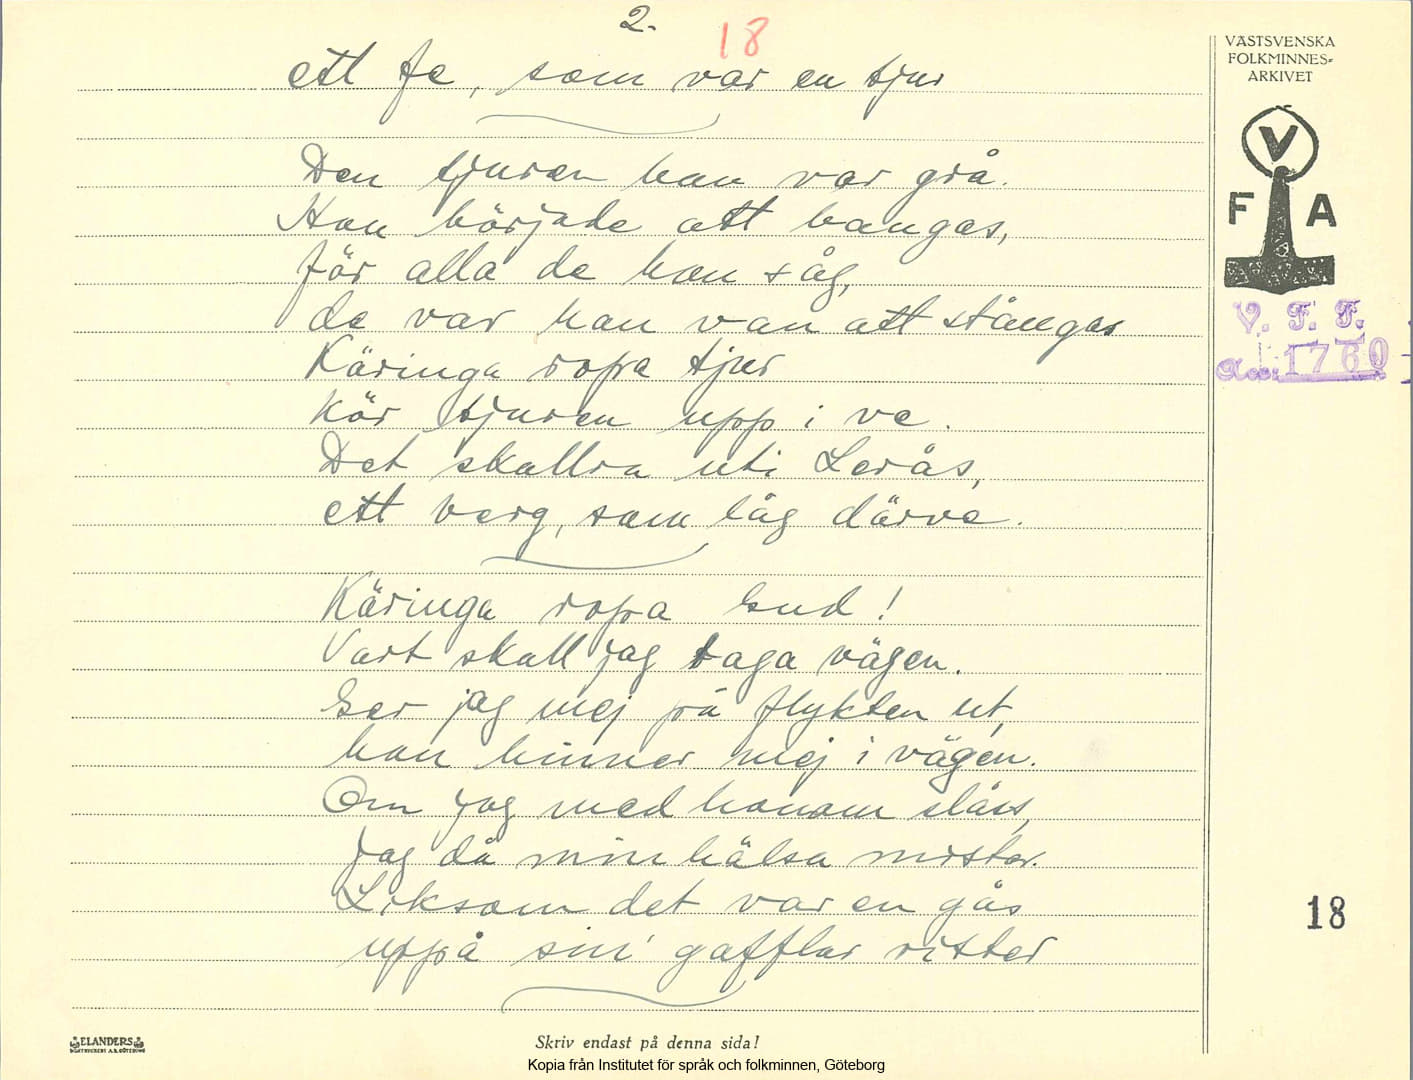 2.
18
ett fe, som var en tjur
Den tjuren han var grå.
Han började att bangas,
för alla de han såg,
de var han van att stångas
Käringa ropa tjur
Kör tjuren upp i ve.
Det skallra uti Lerås,
ett berg, som låg därve.
Käringa ropa Gud!
Vart skall jag taga vägen.
Ger jag mej på flykten ut,
han hinner mej i vägen.
Om jag med honom slåss,
Jag då min hälsa mister.
Liksom det var en gås
uppå sin' gafflar rister
VÄSTSVENSKA
FOLKMINNES-
ARKIVET
V
F A
V. F. F.
Acc: 1760
18
ELANDERS
BOKTRYCKERI A.B. GÖTEBORG
Skriv endast på denna sida!
Kopia från Institutet för språk och folkminnen, Göteborg